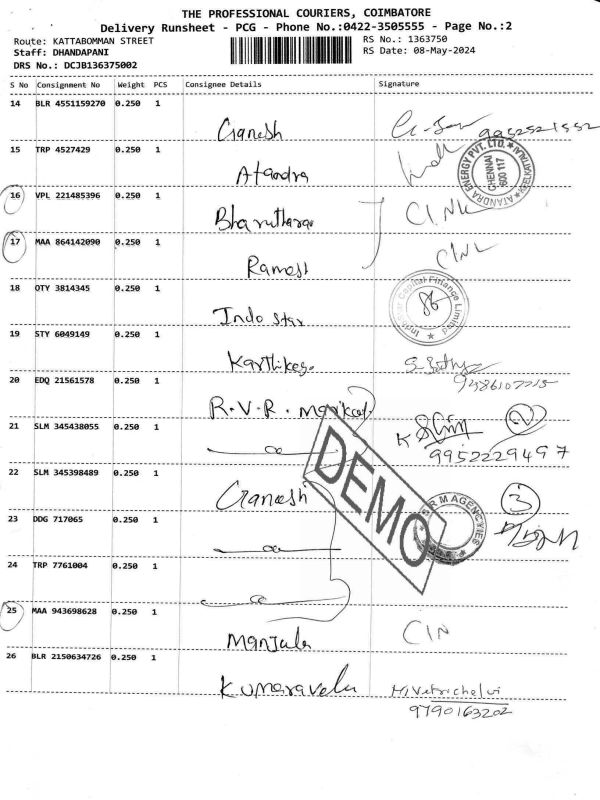 THE PROFESSIONAL COURIERS, COIMBATORE
Delivery Runsheet - PCG - Phone No.:0422-3505555 - Page No.:2
Route: KATTABOMMAN STREET
RS No.: 1363750
Staff: DHANDAPANI
RS Date: 08-May-2024
DRS No.: DCJB136375002
S No Consignment No Weight PCS Consignee Details Signature
14 BLR 4551159270 0.250 1
Ganesh 9952521552
15 TRP 4527429 0.250 1
Atandra
ATANDRA ENERGY PVT. LTD.
CHENNAI
600 117
16 VPL 221485396 0.250 1
CINL
17 MAA 864142090 0.250 1
Ramesh CINL
18 OTY 3814345 0.250 1
Indo star
Indostar Capital Finance Limited
86
19 STY 6049149 0.250 1
9486107215
20 EDQ 21561578 0.250 1
R.V.R.
21 SLM 345438055 0.250 1
K 2
9952229497
22 SLM 345398489 0.250 1
Ganesh 3
DEMO
23 DDG 717065 0.250 1
24 TRP 7761004 0.250 1
25 MAA 943698628 0.250 1
Manjula CIN
26 BLR 2150634726 0.250 1
Kumaravelu M.Vetrichelvi
9790163202